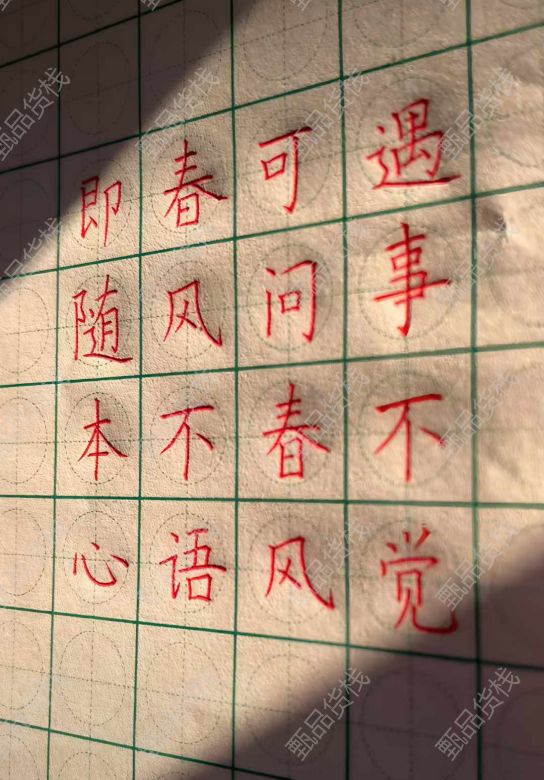 遇事不觉
可问春风
春风不语
即随本心
甄品货栈